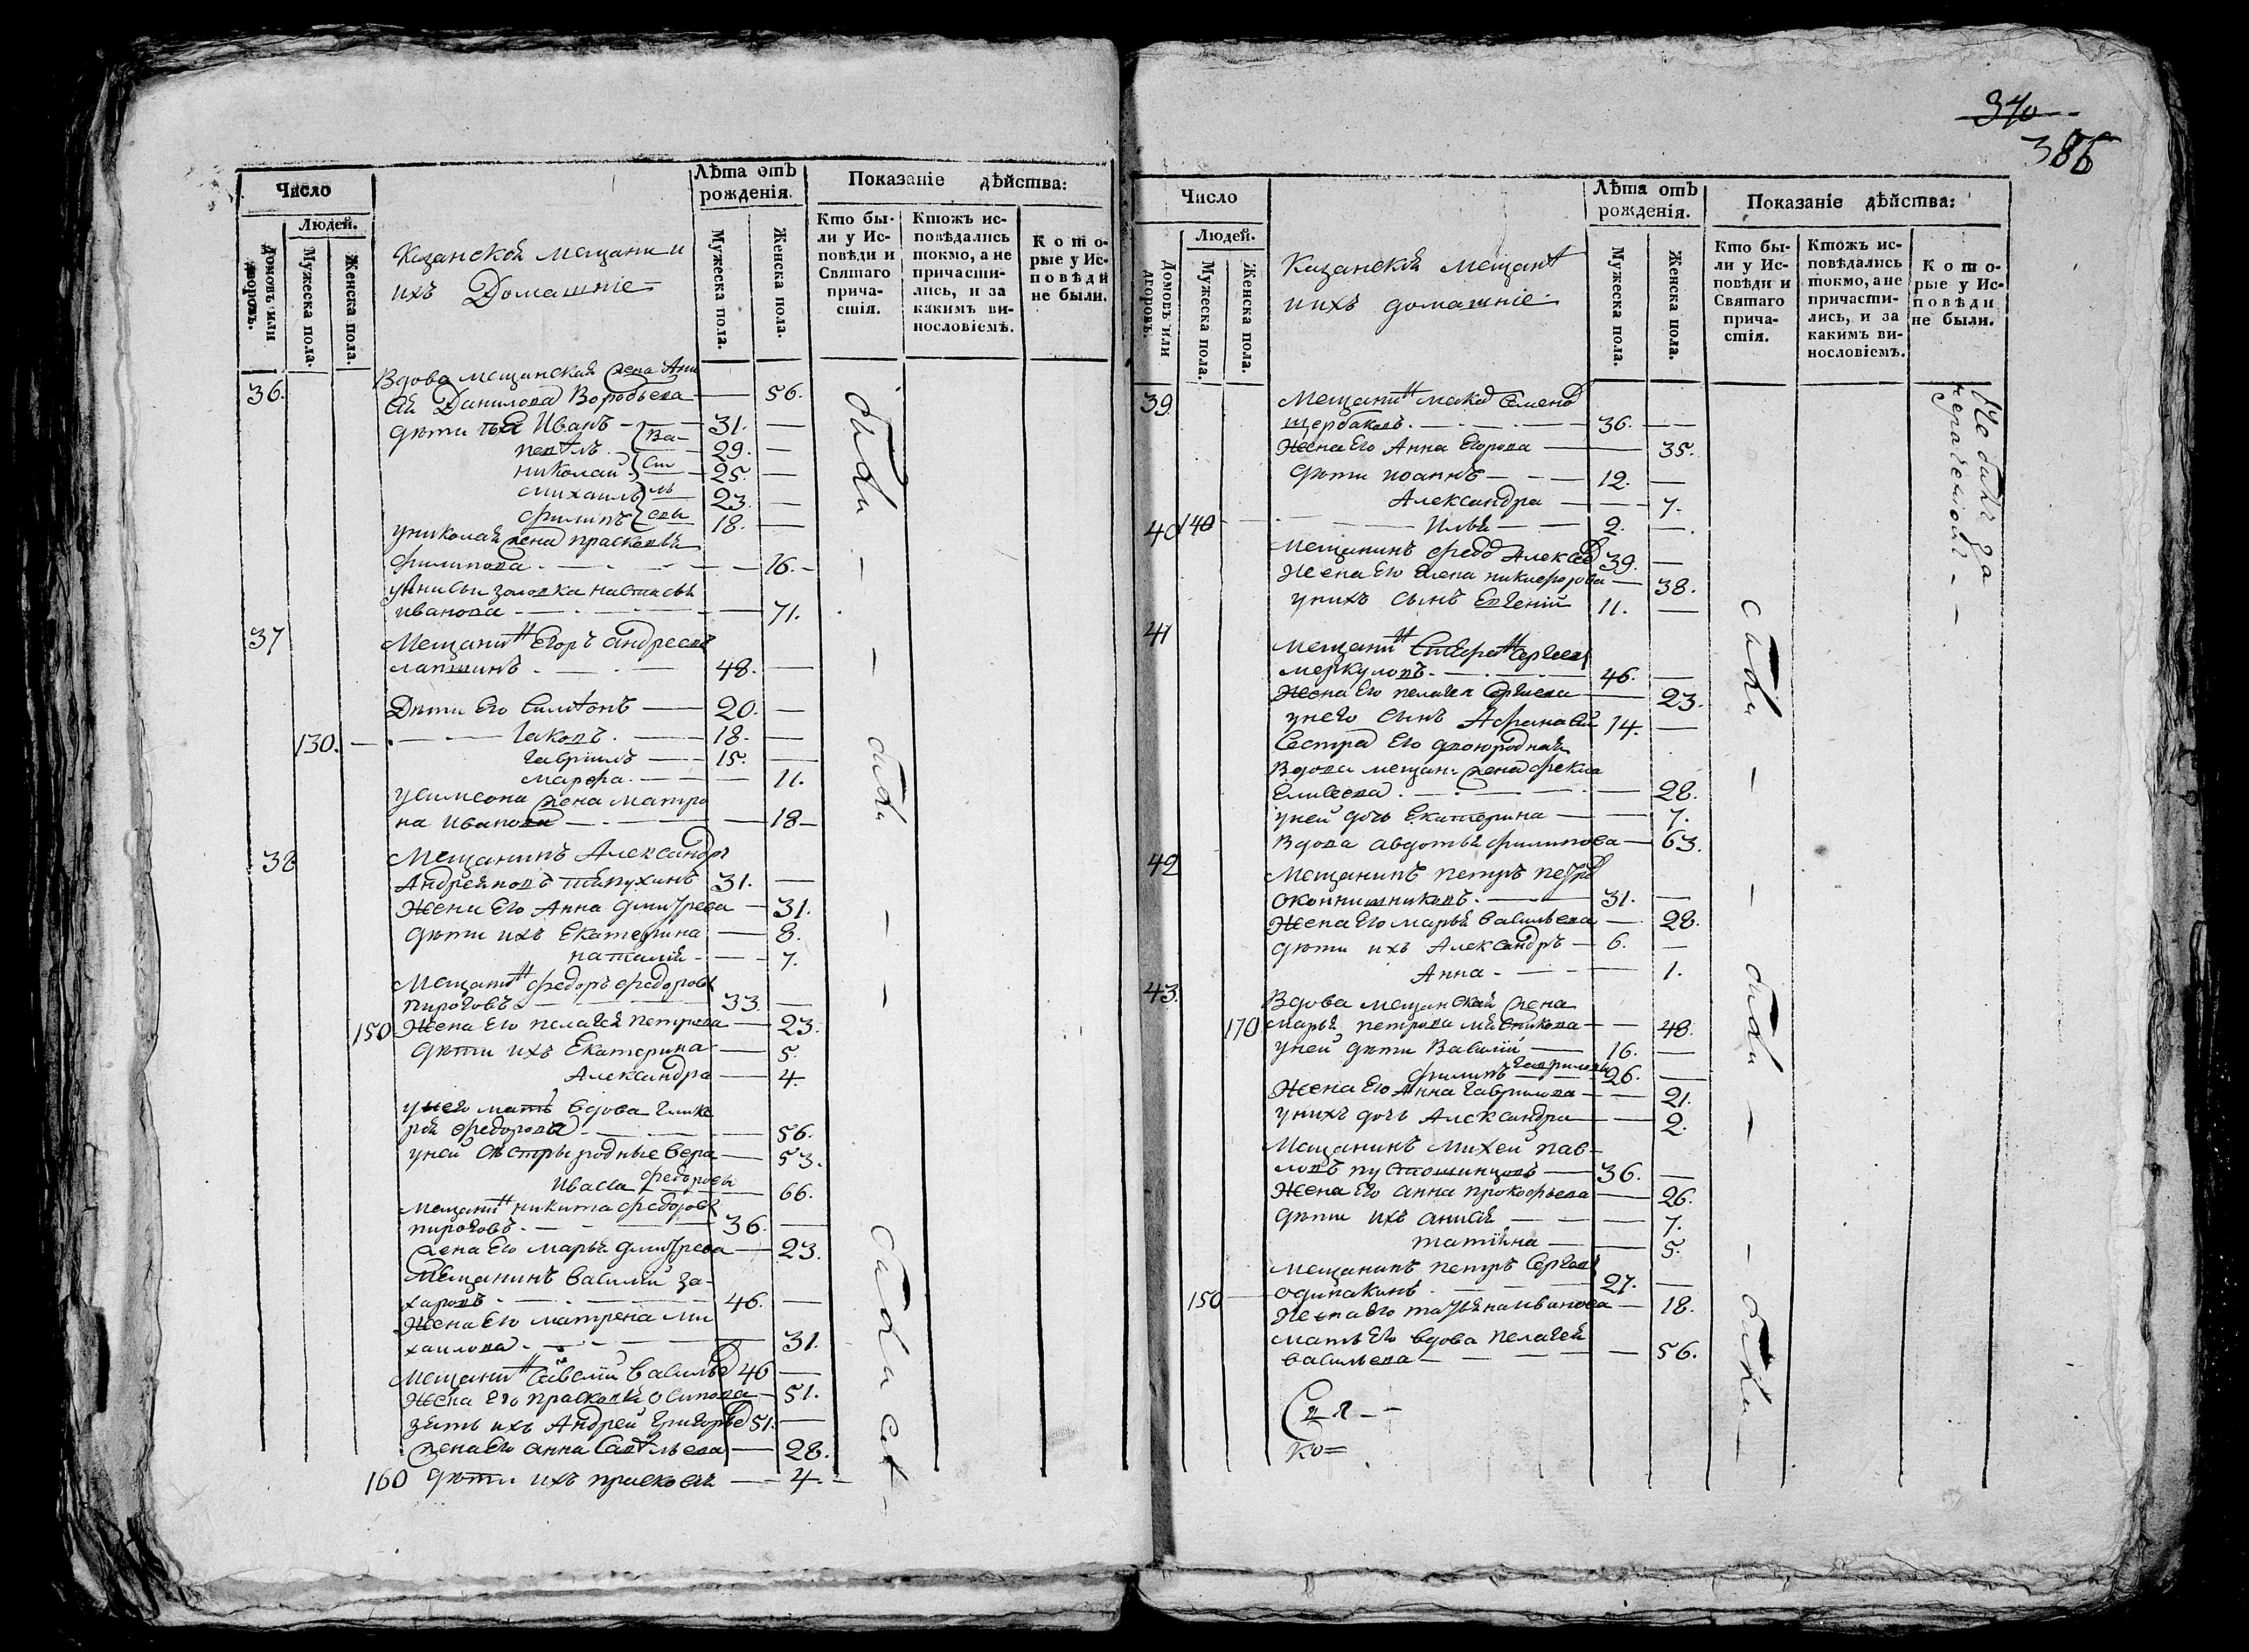 Число
Людей.
Домовъ или дворовъ.
Мужеска пола.
Женска пола.
Казанской мещани и
ихъ Домашніе
Лѣта отъ рожденія.
Мужеска пола.
Женска пола.
Показаніе дѣйства:
Кто бы-
ли у Ис-
повѣди и
Святаго
прича-
стія.
Ктожъ ис-
повѣдались
токмо, а не
причасти-
лись, и за
какимъ ви-
нословіемъ.
Кото-
рые у Ис-
повѣди
не были.
36. Вдова мещанская жена Ани
сія Данилова Воробьева — 56.
дѣти ея Иванъ — 31. —
Павелъ 29. —
Николай 25. —
Михаилъ 23. —
Филипъ 18. —
у николая жена прасковья
филипова — 16. —
золовка настасья
иванова — 71.
37 Мещанин Егоръ андреевъ
лапшинъ — 48. —
Дѣти Его Симеонъ — 20. —
130. — Іаковъ — 18. —
Гавріилъ — 15. —
марфа — 11.
у симеона жена матрё
на иванова — 18 —
38 Мещанинъ Александръ
Андреяновъ 31. —
Жена Его Анна дмитрева — 31.
дѣти ихъ Екатерина — 8.
наталія — 7.
Мещанин федоръ федоровъ
пироговъ — 33. —
150 Жена Его пелагея петрова — 23.
дѣти ихъ Екатерина — 5.
Александра — 4
у него мать вдова глике
рія федорова — 56.
у ней сѣстры родные вера — 53.
федоровы 66.
Мещанин никита федоровъ
пироговъ — 36. —
жена Его марья дмитрева — 23.
Мещанинъ василій за-
харовъ — 46. —
Жена Его матрена ми
хаилова — 31.
Мещанин Савелій василье 46 —
Жена Его прасковья осипова — 51.
зять ихъ Андрей григорье 51. —
жена Его анна Савельева — 28.
160 дѣти ихъ прасковья — 4. —
были — были — были
340
386
Число
Людей.
Домовъ или дворовъ.
Мужеска пола.
Женска пола.
Казанскія мещан
и ихъ домашніе
Лѣта отъ рожденія.
Мужеска пола.
Женска пола.
Показаніе дѣйства:
Кто бы-
ли у Ис-
повѣди и
Святаго
прича-
стія.
Ктожъ ис-
повѣдались
токмо, а не
причасти-
лись, и за
какимъ ви-
нословіемъ.
Кото-
рые у Ис-
повѣди
не были.
39. Мещанин Семено
щербаковъ — 36. —
Жена Его Анна Егорова — 35.
дѣти иоаннъ — 12. —
Александра — 7.
140 Илья — 2. —
40 мещанинъ федо Алексее 39. —
Жена Его Елена никифорова — 38.
у нихъ сынъ Евгеній 11. —
41 мещанин Сергеев
меркуловъ — 46. —
Жена Его пелагея Сергиева — 23.
у него сынъ Афанасій 14. —
Сестра Его двоюродная
вдова мещан. жена фекла
Елисеева — 28.
у ней дочь Екатерина — 7.
вдова авдотья филипова — 63.
42 Мещанинъ петръ петро
оконнишниковъ — 31. —
Жена Его марья васильева — 28.
дѣти ихъ Александръ — 6. —
Анна — 1.
43. Вдова мещанская жена
170 марья петрова мясникова — 48.
у ней дѣти Василій — 16. —
филипъ гавриловы 26. —
Жена Его Анна гаврилова — 21.
у нихъ дочь Александра — 2.
Мещанинъ михей пав-
ловъ пустошинцовъ — 36. —
Жена Его анна прокофьева — 26.
дѣти ихъ анисія — 7.
татіяна — 5.
мещанинъ петръ Сергеев
одинакинъ — 27. —
150 Жена Его татьяна иванова — 18.
мать Его вдова пелагея
васильева — 56.
были — были — были —
Не были за
нерачениемъ —